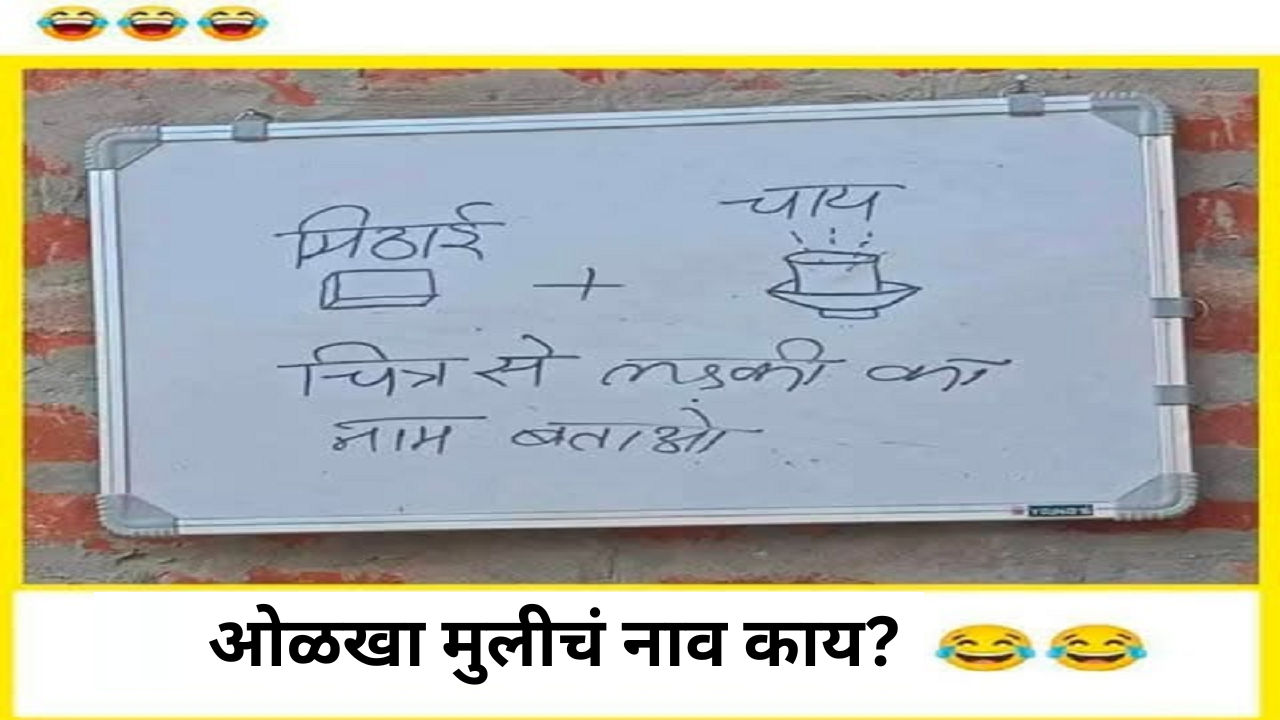 😂😂😂
मिठाई + चाय
चित्र से लड़की का
नाम बताओ
ओळखा मुलीचं नाव काय? 😂😂